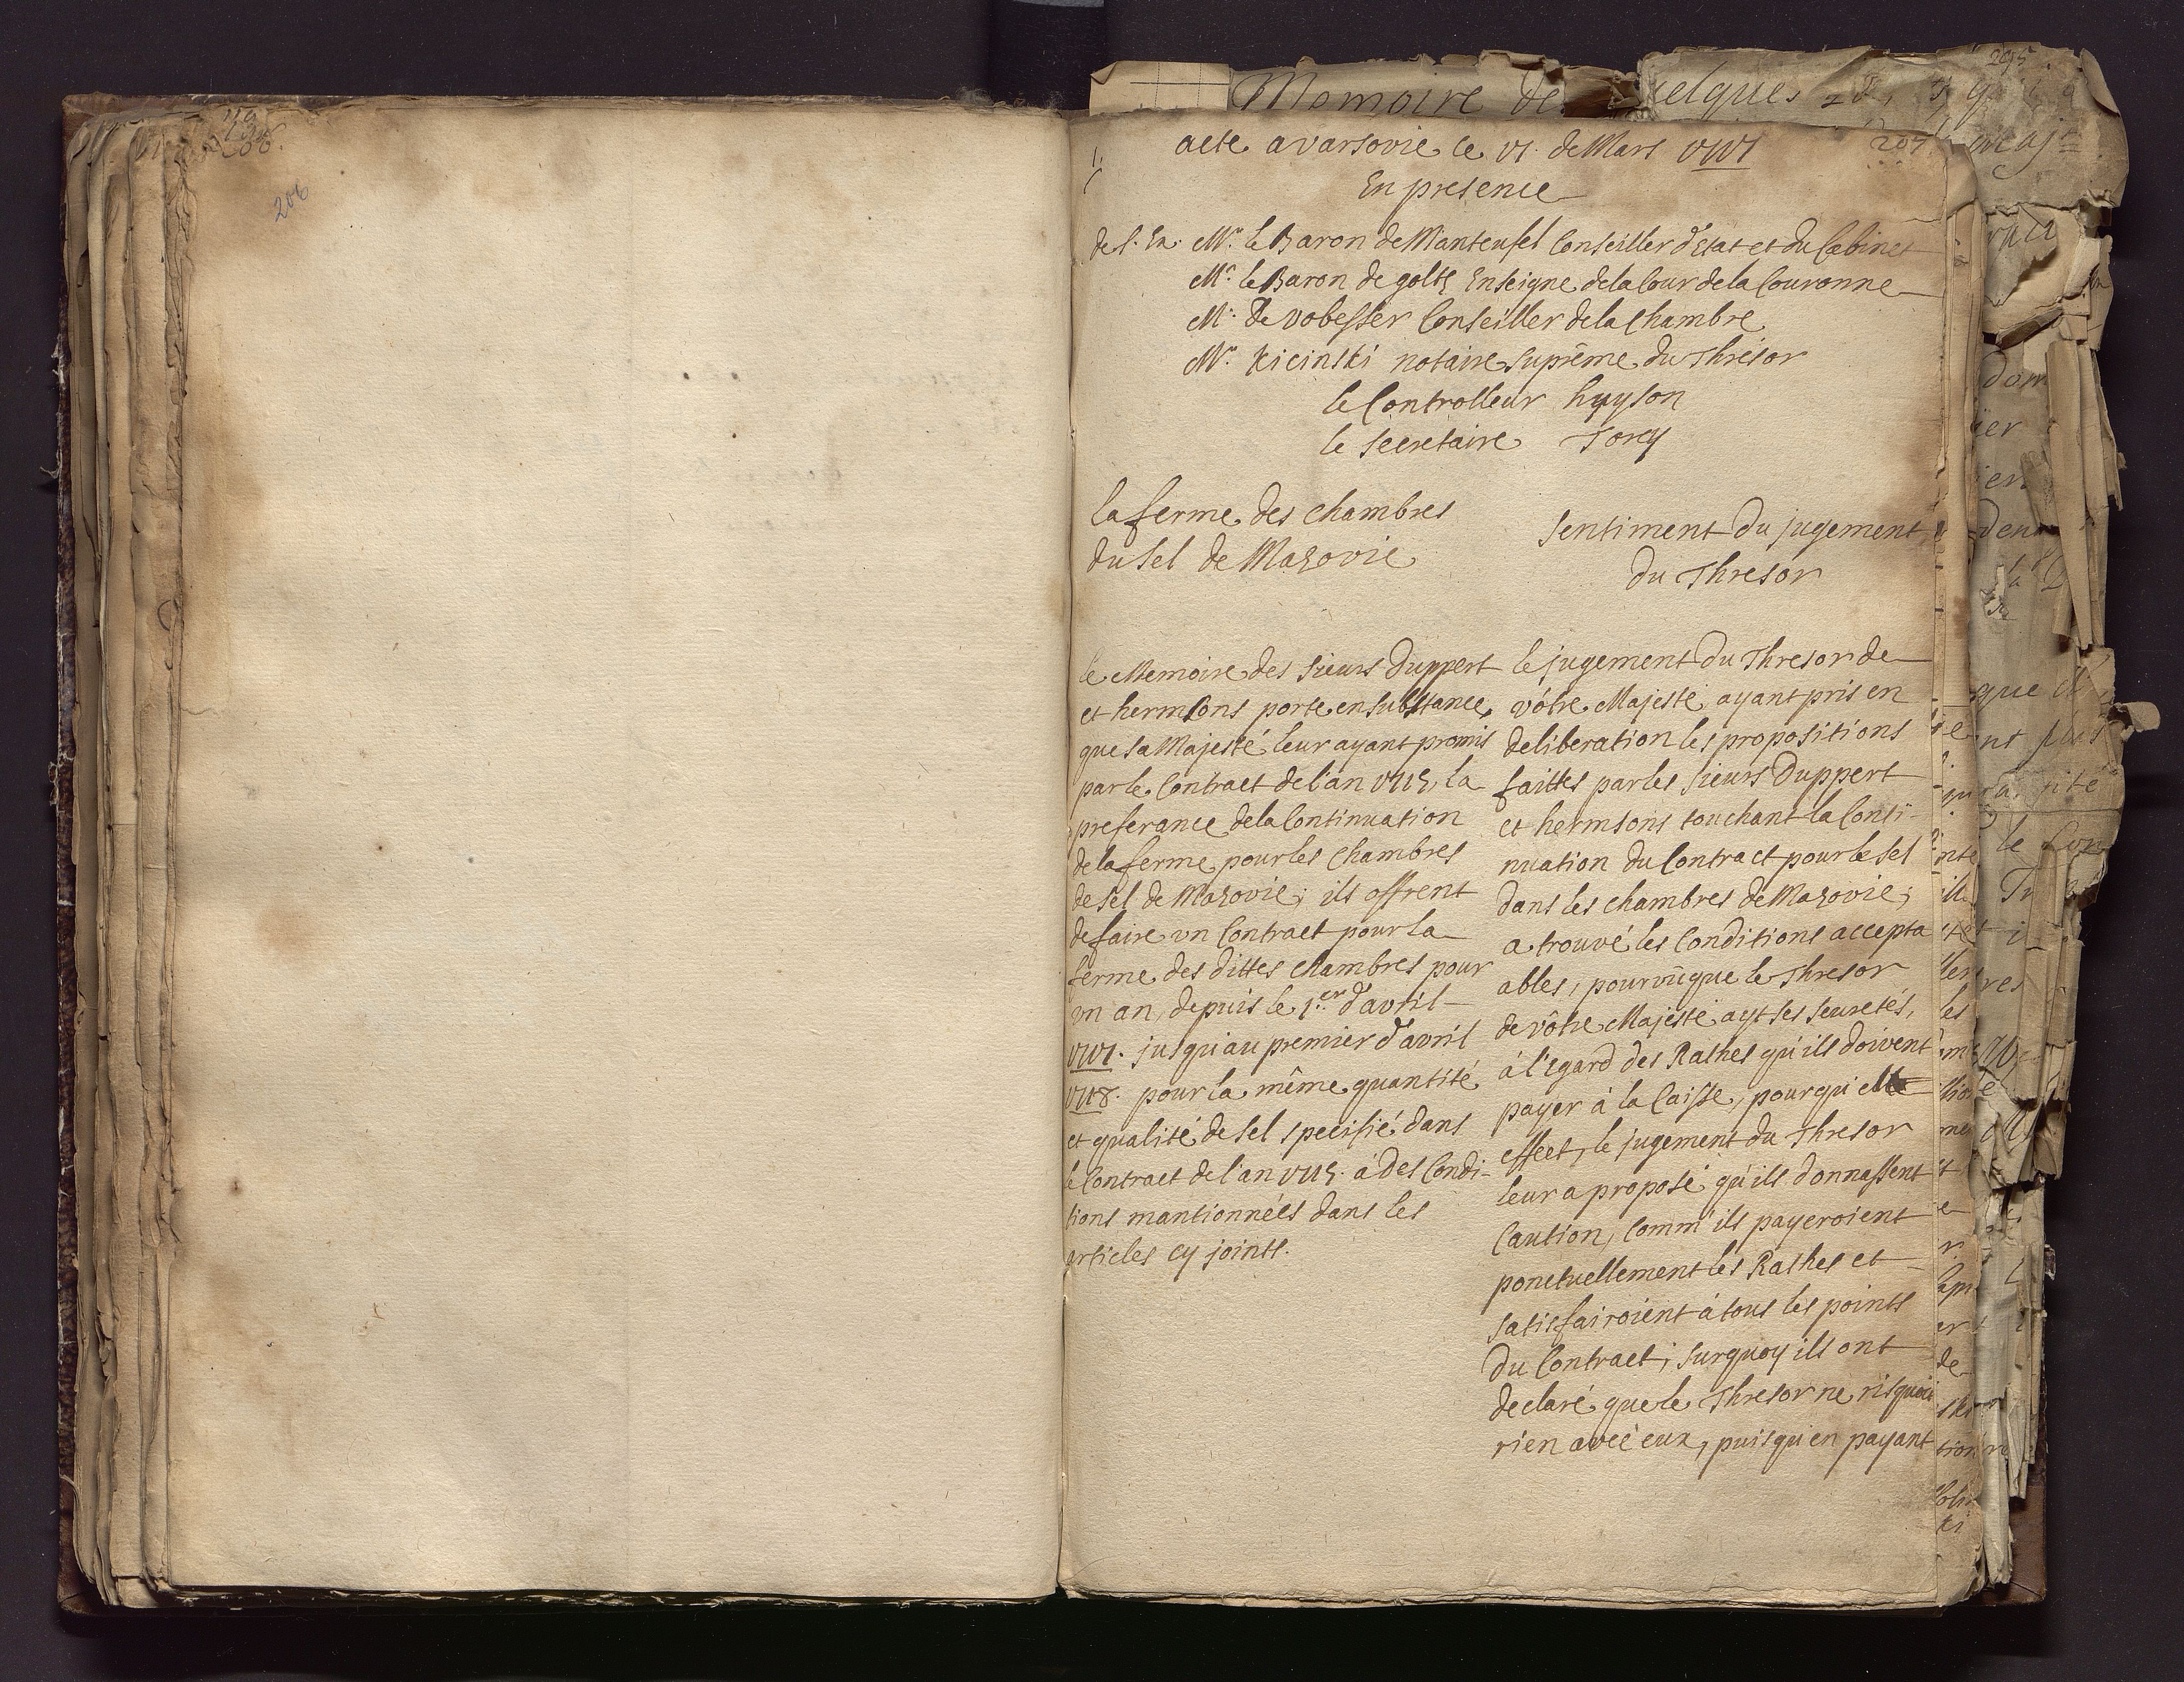 206
acte a varsovie le VI. de Mars
207
En presence
de S. Ex. Mr. le Baron de Manteufel Conseiller d'Etat et du Cabinet
Mr. le Baron de goltz Enseigne de la Cour de la Couronne
Mr. de vobesser Conseiller de la Chambre
Mr. Kicinski notaire suprême du Thrésor
le Controlleur huyson
le secretaire Torcy
la ferme des chambres
du sel de Mazovie
Sentiment du jugement
du Thresor
le Memoire des Sieurs Duppert
et hermsons porte en substance,
que sa Majesté leur ayant promis
par le Contract de l'an la
preferance de la Continuation
de la ferme pour les Chambres
de sel de Mazovie; ils offrent
de faire un Contract pour la
ferme des dittes chambres pour
un an, depuis le 1.er d'avril
jusqu'au premier d'avril
pour la même quantité
et qualité de sel specifié dans
le Contract de l'an à des Condi-
tions mantionnées dans les
articles cy joints.
le jugement du Thresor de
vôtre Majesté ayant pris en
deliberation les propositions
faittes par les Sieurs Duppert
et hermsons touchant la Conti-
nuation du Contract pour le sel
dans les chambres de Mazovie;
a trouvé les Conditions accepta
ables, pourvûque le Thresor
de vôtre Majesté ayt ses seuretés,
à l'egard des Rathes qu'ils doivent
payer à la Caisse, pour qu
effect, le jugement du Thresor
leur a proposé qu'ils donnassent
Caution, Comm' ils payeroient
ponctuellement les Rathes et
satisfairoient à tous les points
du Contract; surquoy ils ont
declaré que le Thresor ne risquoit
rien avec eux, puisqu'en payant
Memoire de quelques